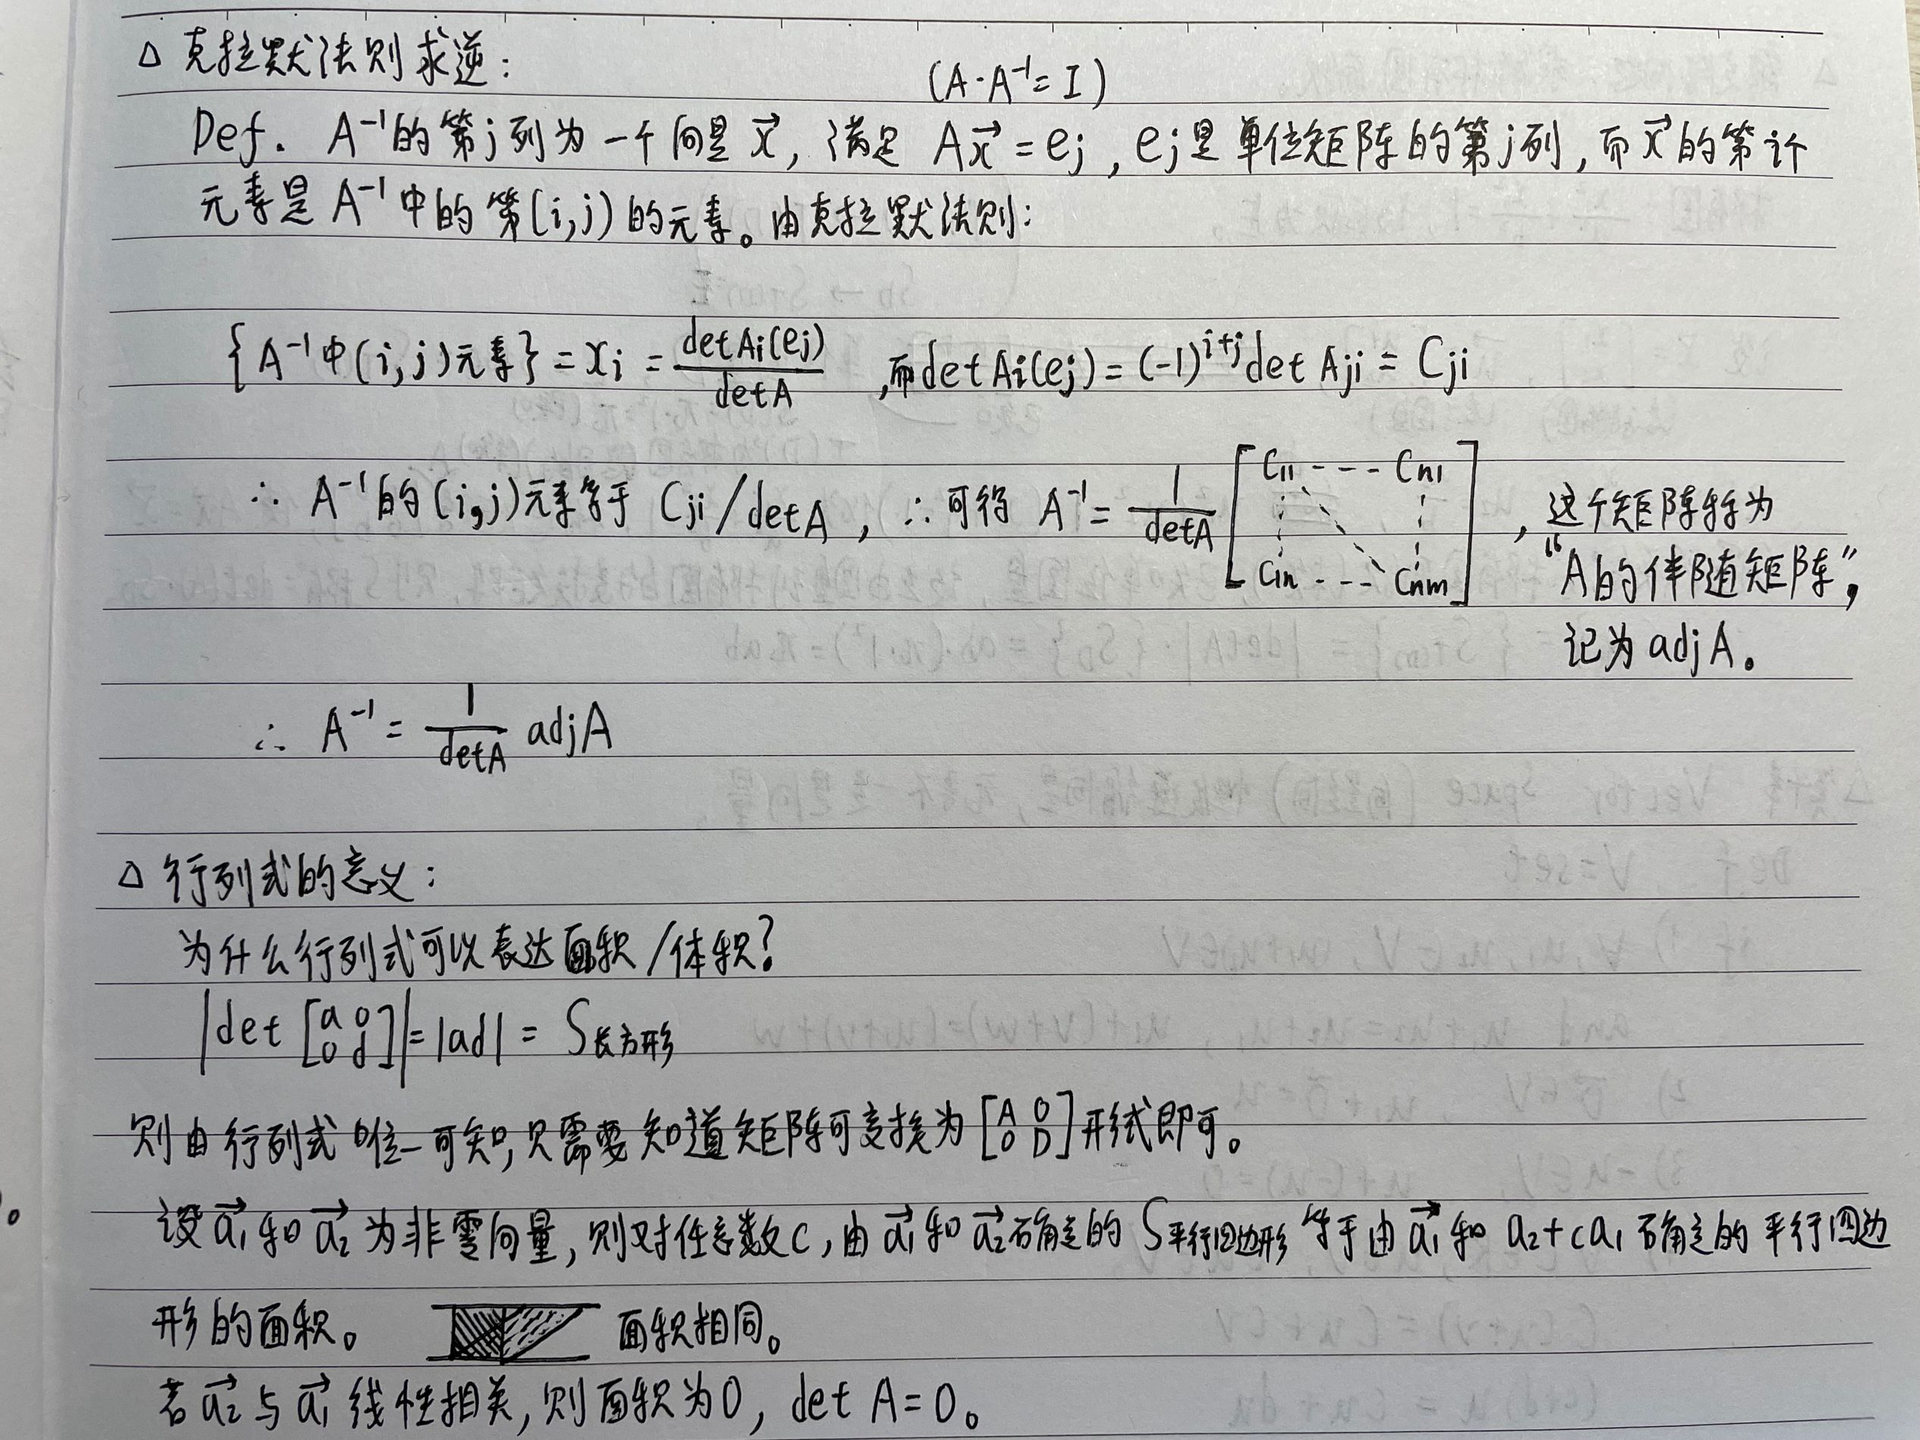 △ 克拉默法则求逆：
(A·A⁻¹=I)
Def. A⁻¹的第j列为一个向量 x⃗, 满足 Ax⃗=ej, ej是单位矩阵的第j列,而x⃗的第i个
元素是A⁻¹中的第(i,j)的元素。由克拉默法则:
{A⁻¹中(i,j)元素}=xi=detAi(ej)/detA ,而detAi(ej)=(-1)^(i+j)det Aji=Cji
∴ A⁻¹的(i,j)元素等于 Cji/detA, ∴可得 A⁻¹=1/detA [C11 --- Cn1 ⋮ ⋱ ⋮ C1n --- Cnm], 这个矩阵称为
“A的伴随矩阵”,
记为adjA。
∴ A⁻¹=1/detA adjA
△ 行列式的意义:
为什么行列式可以表达面积/体积?
|det[a 0 0 d]|=|ad|=S长方形
则由行列式唯一可知,只需要知道矩阵可变换为[A 0 0 D]形式即可。
设a⃗1和a⃗2为非零向量,则对任意数c,由a⃗1和a⃗2确定的S平行四边形等于由a⃗1和a2+ca1确定的平行四边
形的面积。 面积相同。
若a⃗2与a⃗1线性相关,则面积为0, det A=0。